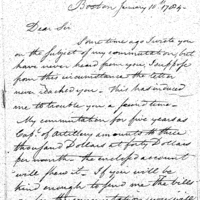 Boston January 10th 1784
Dear Sir
Some time ago I wrote you
on the subject of my commutation, but
have never heard from you, I suppose
from this circumstance the letter
never reached you - this has induced
me to trouble you a second time -
My commutation for five years as
Capt. of Artillery amounts to three
thousand Dollars at forty Dollars
per month - the enclosed account
will shew it - If you will be
kind enough to send me the bills